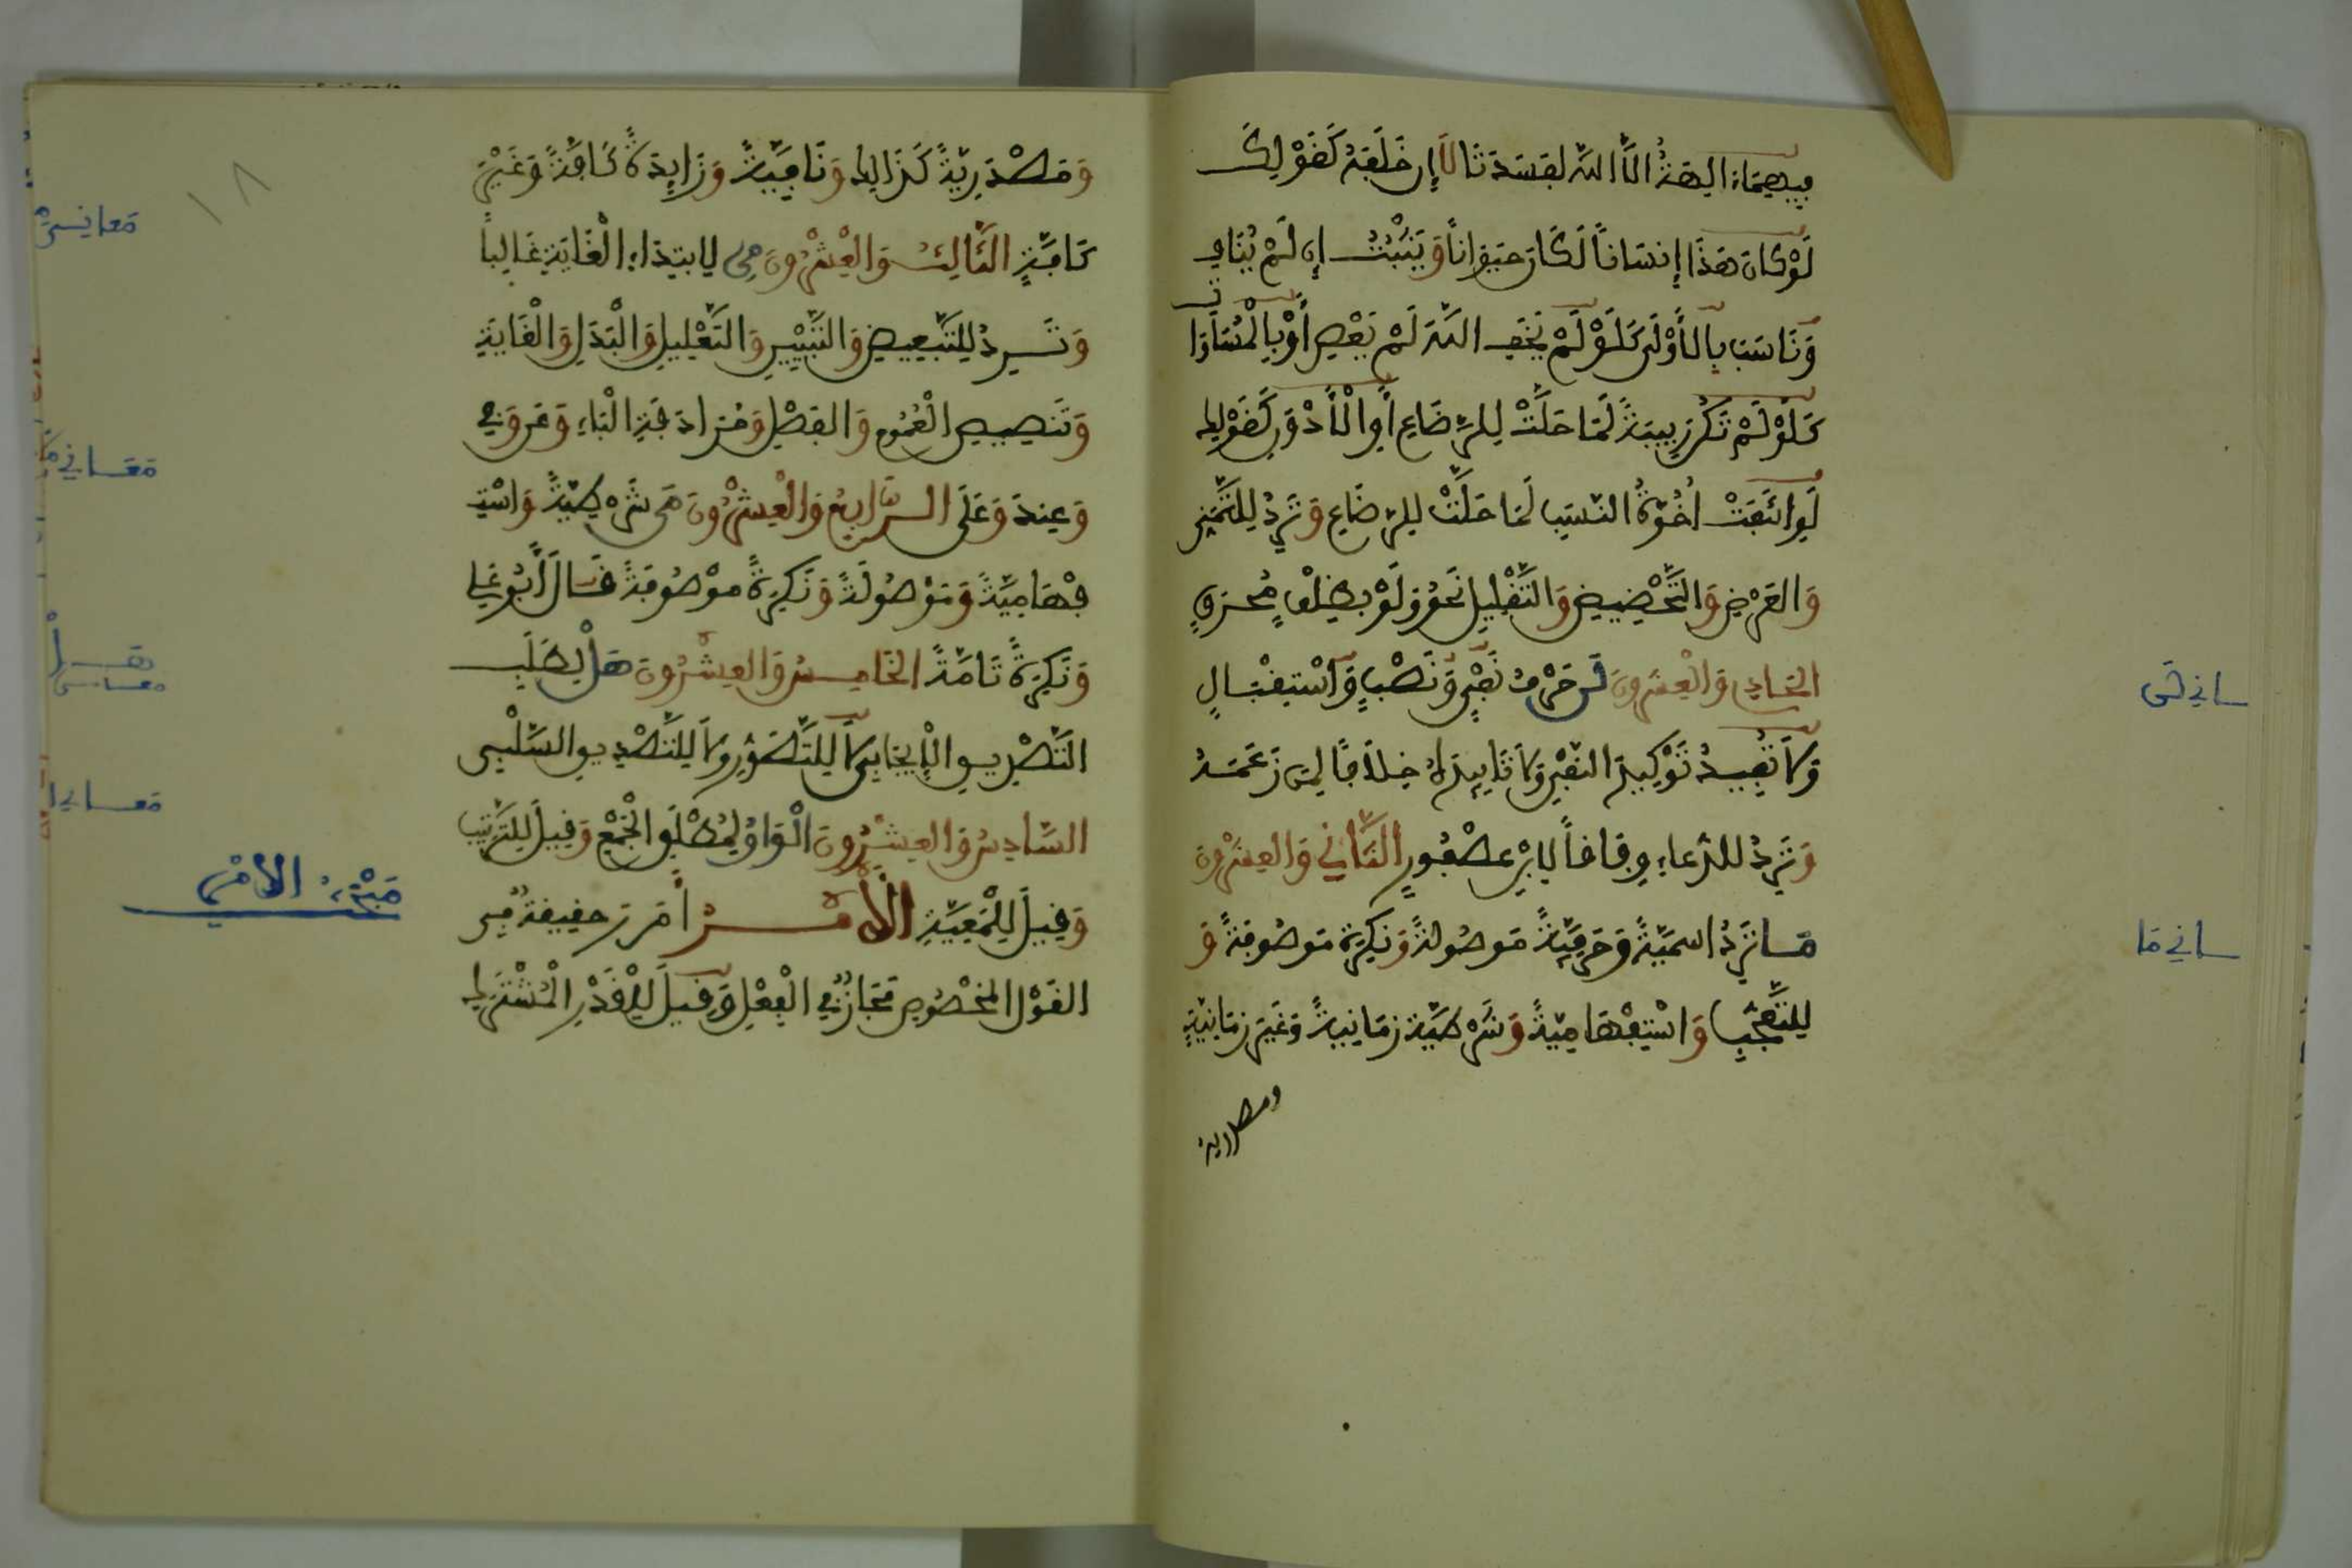 فِيهِمَا ءَالِهَةٌ إِلَّا اللَّهُ لَفَسَدَتَا لَا إِن خَلَفَهُ كَقَوْلِكَ
لَوْ كَانَ هَذَا إِنسَاناً لَكَانَ حَيَوَاناً وَيَثْبُتُ إِن لَمْ يُنَافِ
وَنَاسَبَ بِالْأَوْلَى كَلَوْ لَمْ يَخَفِ اللَّهَ لَمْ يَعْصِ أَوْ بِالْمُسَاوَاتِ
كَلَوْ لَمْ تَكُن رَبِيبَةً لَمَا حَلَّتْ لِلرَّضَاعِ أَوِ الْأَدْوَنِ كَقَوْلِكَ
لَوِ انْتَفَتْ أُخُوَّةُ النَّسَبِ لَمَا حَلَّتْ لِلرَّضَاعِ وَتَرِدُ لِلتَّمَنِّي
وَالْعَرْضِ وَالتَّحْضِيضِ وَالتَّقْلِيلِ نَحْوُ وَلَوْ بِظِلْفٍ مُحْرَقٍ
الْحَادِي وَالْعِشْرُونَ لَن حَرْفُ نَفْيٍ وَنَصْبٍ وَاسْتِقْبَالٍ
وَلَا تُفِيدُ تَوْكِيدَ النَّفْيِ وَلَا تَأْبِيدَهُ خِلَافًا لِمَن زَعَمَهُ
وَتَرِدُ لِلدُّعَاءِ وِفَاقاً لِابْنِ عُصْفُورٍ الثَّانِي وَالْعِشْرُونَ
مَا تَرِدُ اسْمِيَّةً وَحَرْفِيَّةً مَوْصُولَةً وَنَكِرَةً مَوْصُوفَةً وَ
لِلتَّعَجُّبِ وَاسْتِفْهَامِيَّةً وَشَرْطِيَّةً زَمَانِيَّةً وَغَيْرَ زَمَانِيَّةٍ
ومصدرية
ـانى لن
ـانى ما
وَمَصْدَرِيَّةً كَذَلِكَ وَنَافِيَةً وَزَايِدَةً كَافَّةً وَغَيْرَ
كَافَّةٍ الثَّالِثُ وَالْعِشْرُونَ مِن لِابْتِدَاءِ الْغَايَةِ غَالِباً
وَتَرِدُ لِلتَّبْعِيضِ وَالتَّبْيِينِ وَالتَّعْلِيلِ وَالْبَدَلِ وَالْغَايَةِ
وَتَنصِيصِ الْعُمُومِ وَالْفَصْلِ وَمُرَادَفَةِ الْبَاءِ وَعَن وَفِي
وَعِندَ وَعَلَى الرَّابِعُ وَالْعِشْرُونَ مَن شَرْطِيَّةً وَاسْتِـ
ـفْهَامِيَّةً وَمَوْصُولَةً وَنَكِرَةً مَوْصُوفَةً قَالَ أَبُو عَلِي
وَنَكِرَةً تَامَّةً الْخَامِسُ وَالْعِشْرُونَ هَلْ لِطَلَبِ
التَّصْدِيقِ الْإِيجَابِي لَا لِلتَّصَوُّرِ وَلَا لِلتَّصْدِيقِ السَّلْبِي
السَّادِسُ وَالْعِشْرُونَ الْوَاوُ لِمُطْلَقِ الْجَمْعِ وَقِيلَ لِلتَّرْتِيبِ
وَقِيلَ لِلْمَعِيَّةِ الْأَمْرُ أَ مَ رَ حَقِيقَةٌ فِي
الْقَوْلِ الْمَخْصُوصِ مَجَازٌ فِي الْفِعْلِ وَقِيلَ لِلْقَدْرِ الْمُشْتَرَكِ
١٨
معانى من
معانى مَن
هل
معانى
معانى ا
مبحث الأمر